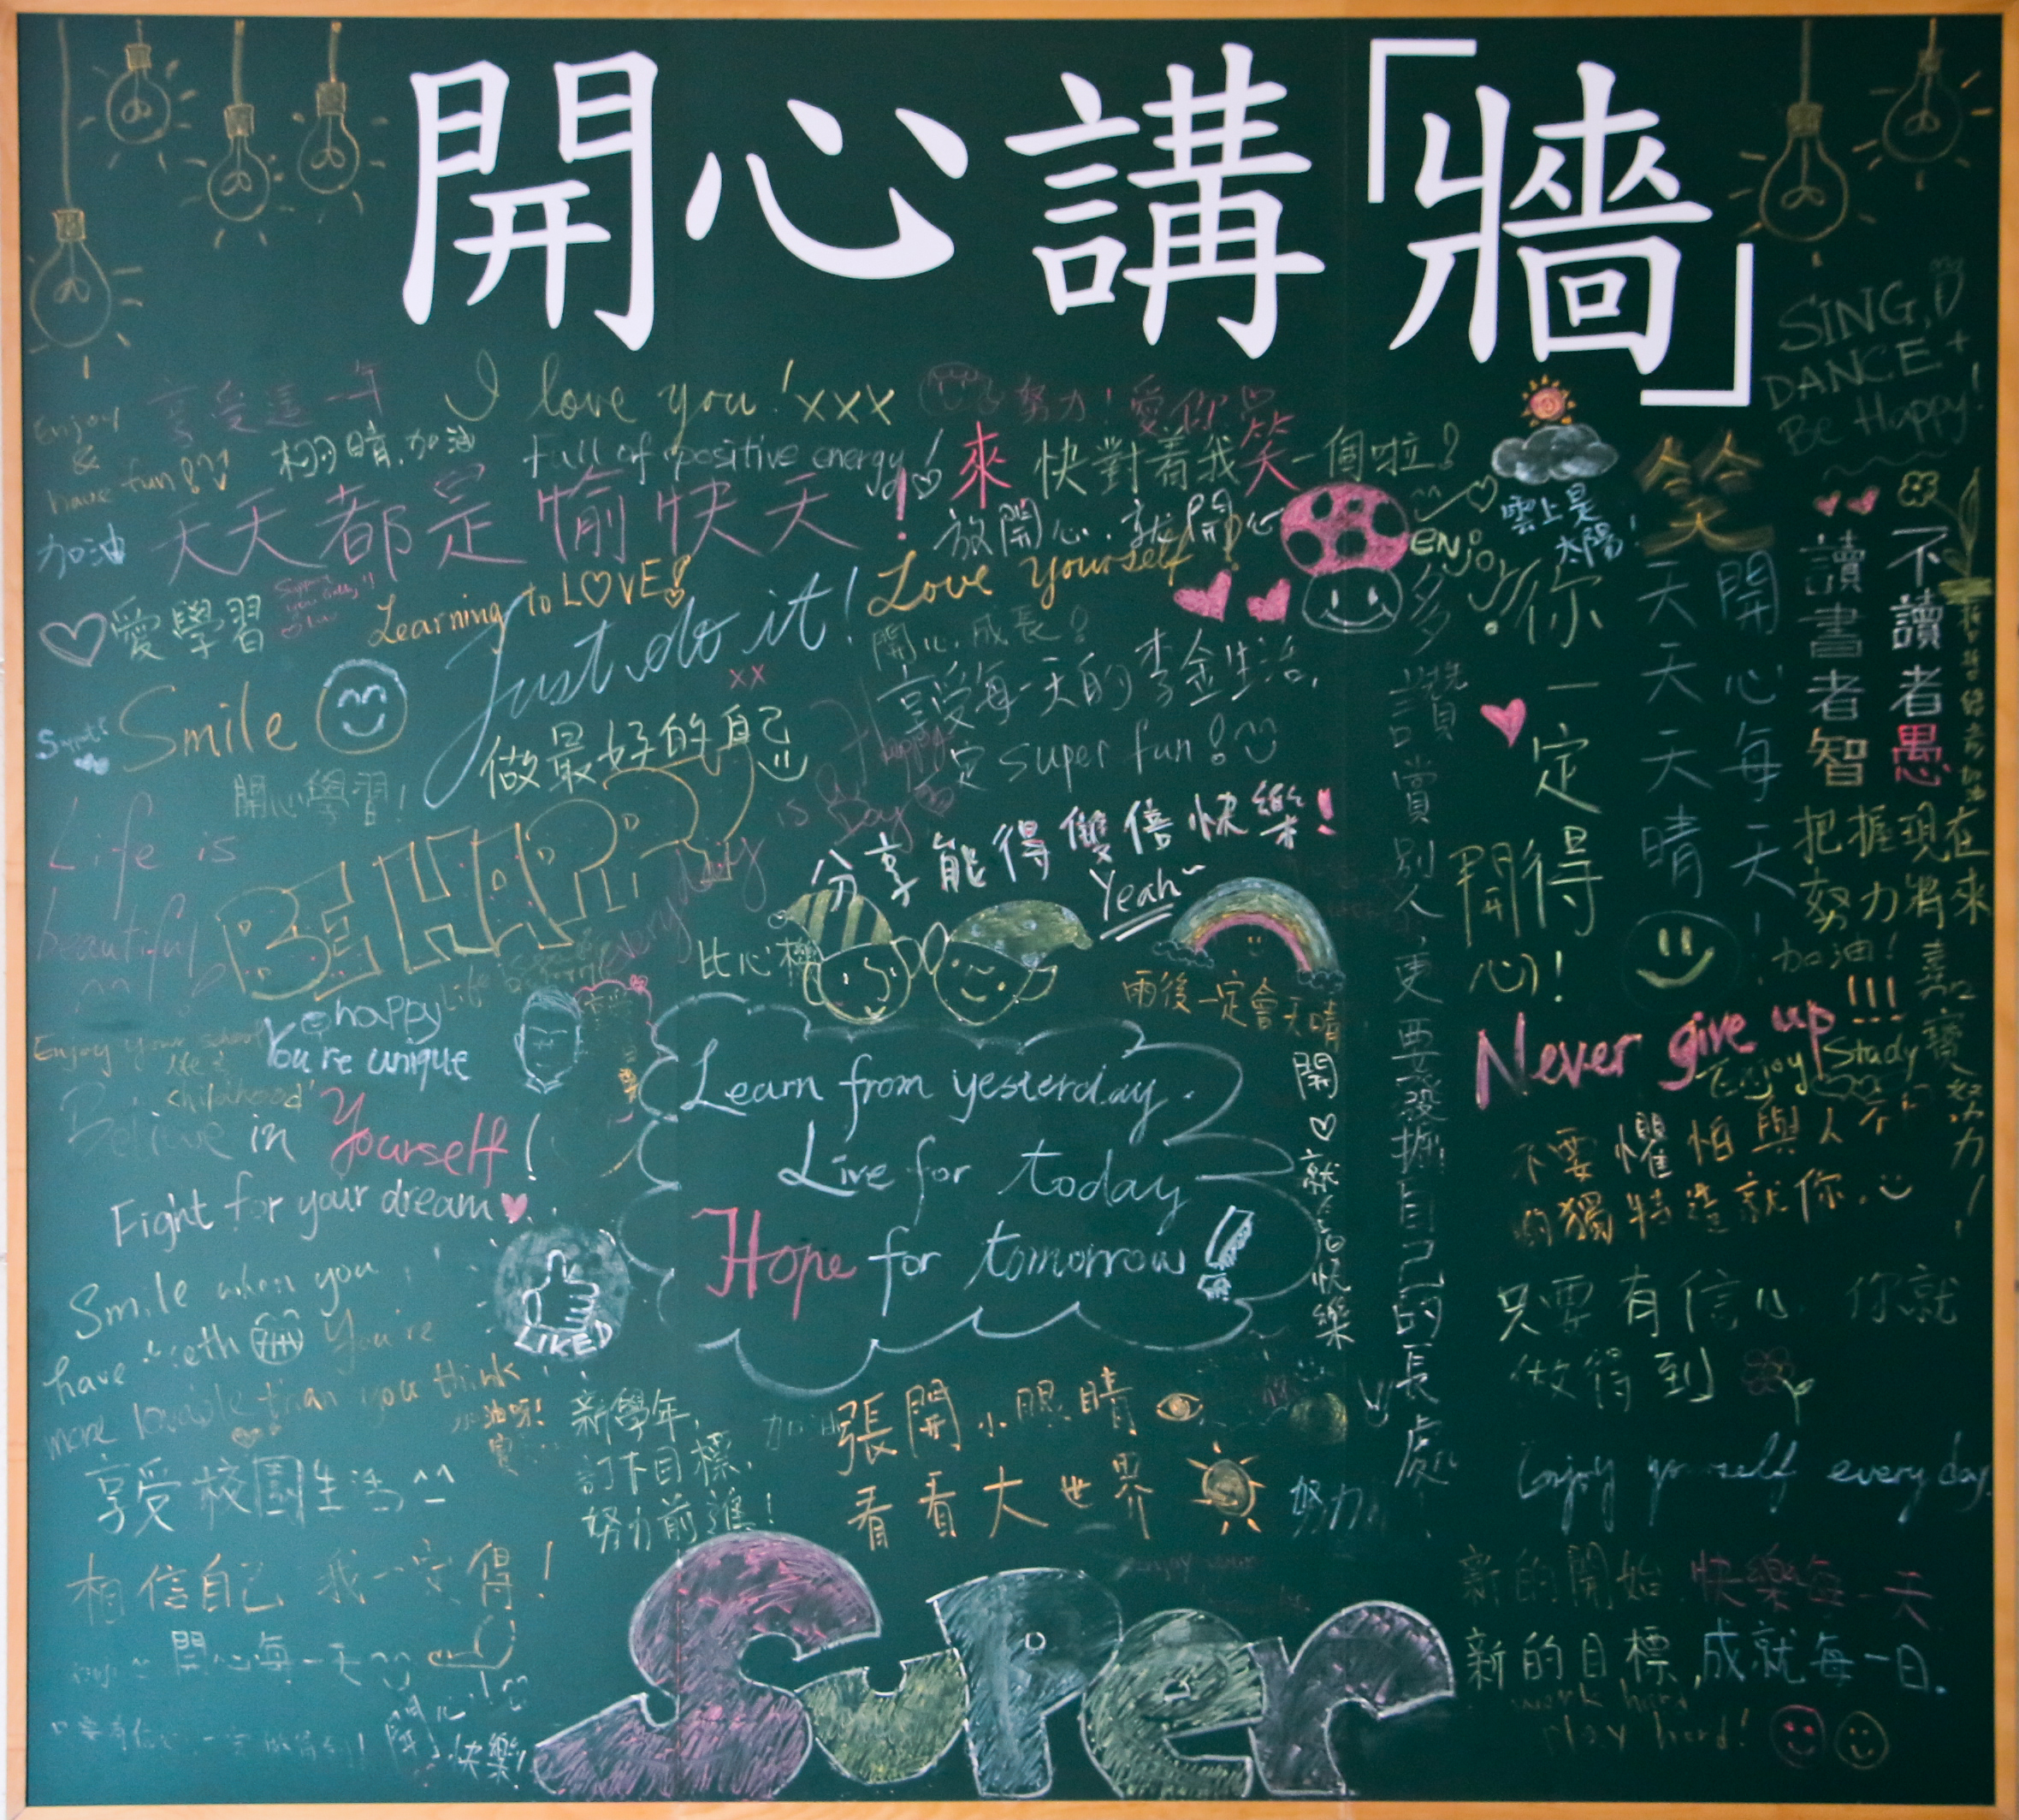 開心講「牆」
SING,
DANCE +
Be Happy!
Enjoy
&
have fun!
享受這一年
I love you! xxx
努力！愛你
晴,加油
Full of positive energy!
來 快對着我笑一個啦！
加油
天天都是愉快天！
放開心,就開心
enjoy
雲上是
太陽！
笑
愛學習
Learning to LOVE!
Just do it!
xx
Love yourself!
開心成長！
享受每一天的李金生活,
一定 super fun!
Smile
開心學習！
做最好的自己
Happy
is a
Day
everyday
Life is
beautiful
BE HAPPY
分享能得雙倍快樂！
Yeah~
比心
雨後一定會天晴
多讚賞別人更要發掘自己的長處
你一定得
開心！
天天天晴
開心每一天！
讀書者智
不讀者愚
把握現在
努力將來
加油！
Never give up!!!
Enjoy Study
不要懼怕與人不同
你的獨特造就你.
努力！
Enjoy your school
life &
childhood!
Be happy
You're unique
Believe in Yourself!
Fight for your dream
Learn from yesterday.
Live for today
Hope for tomorrow!
開♡就會快樂
LIKED
Smile when you
have teeth You're
more lovable than you think
加油呀！
只要有信心 你就
做得到
享受校園生活^^
新學年,
訂下目標,
努力前進！
加油
張開小眼睛
看看大世界
努力
Enjoy yourself every day.
相信自己 我一定得！
開心每一天
開心
快樂！
Super
新的開始,快樂每一天
新的目標,成就每一日.
work hard
play hard!